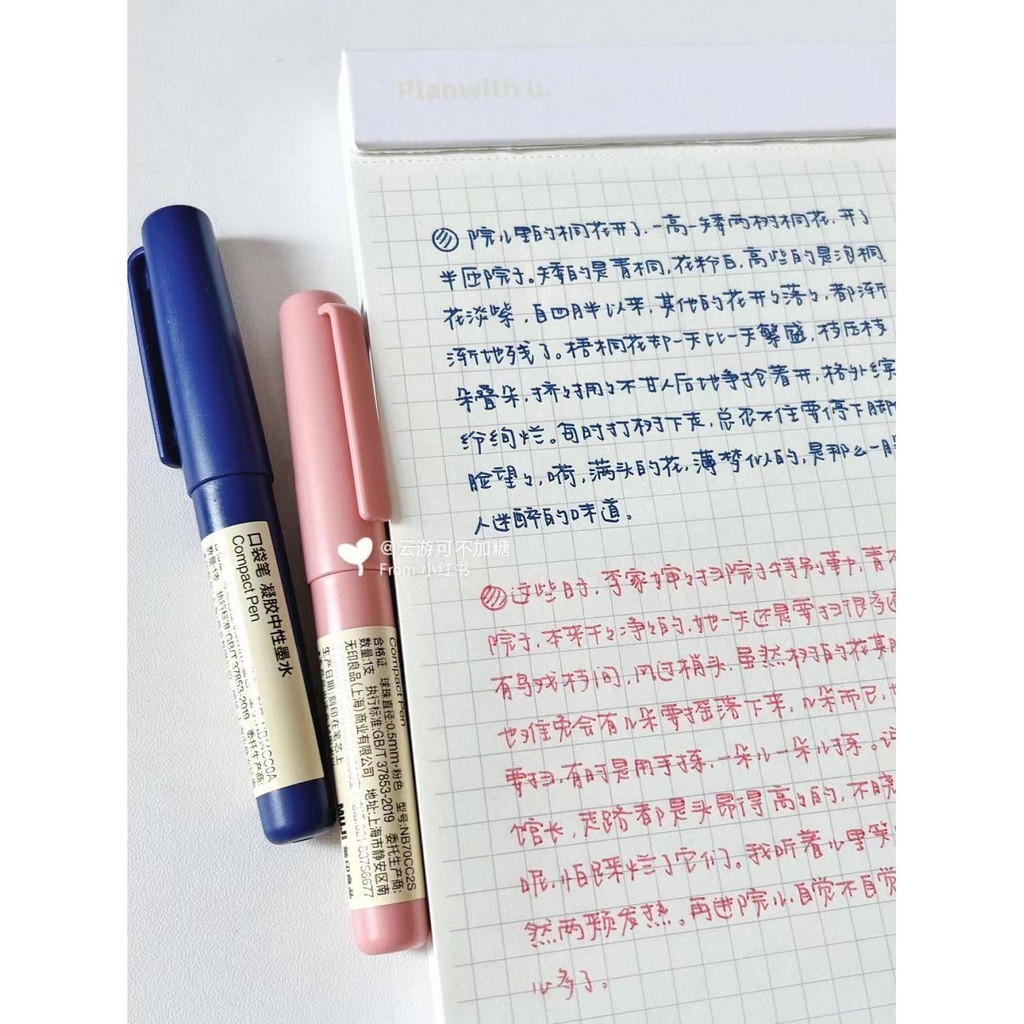 Planwith u.
院儿里的桐花开了,一高一矮两树桐花,开了
半匝院子。矮的是青桐,花粉白,高些的是泡桐
花淡紫,自四月半以来,其他的花开々落々,都渐
渐地残了。梧桐花却一天比一天繁盛,枝压枝
朵叠朵,挤々拥々不甘人后地争抢着开,格外缤
纷绚烂。每时打树下走,总忍不住要停下脚
脸望々,嗬,满头的花,薄梦似的,是那么一股
人迷醉的味道。
这些日,李家婶々扫院子特别事,青
院子,本来干々净々的,她一天还是要扫很多
有鸟残枝间,风过梢头,虽然树的花其
也难免会有几朵要摇落下来,几朵而已,也
要扫,有时是用手拣,一朵儿一朵儿拣。
馆长,走路都是头昂得高々的,不晓
呢,怕踩烂了它们。我听着儿里笑
然两颊发热。再进院儿,自觉不自觉
心多了。
@云游可不加糖
From 小红书
口袋笔 凝胶中性墨水
Compact Pen
数量:1支 执行标准:GB/T 37853-2019 委托生产商:
Compact Pen
合格证 球珠直径:0.5mm·粉色 型号:NB70CC2S
数量:1支 执行标准:GB/T 37853-2019 委托生产商:
无印良品(上海)商业有限公司 地址:上海市静安区南
生产日期:刻印在笔芯上
MUJI 無印良品